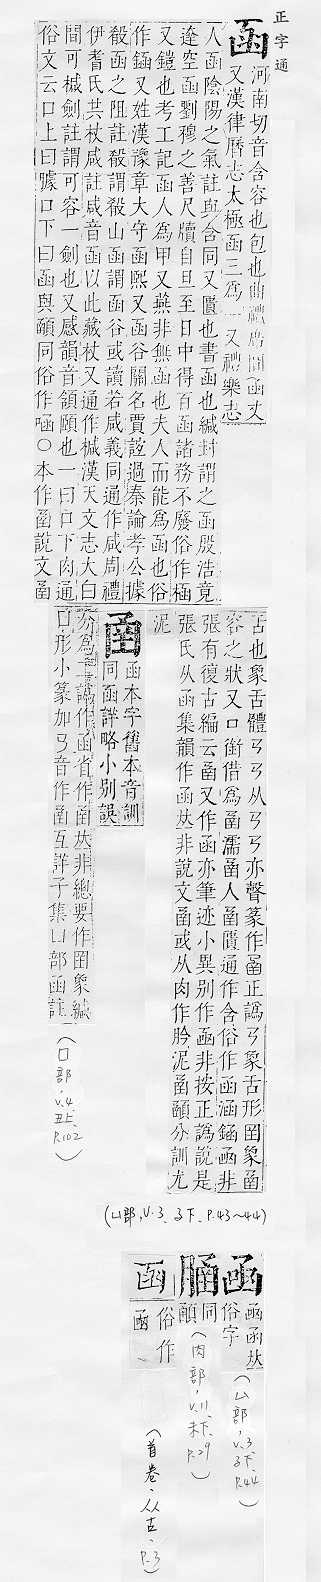 正字通
函
河南切音含容也包也曲禮席間函丈
又漢律曆志太極函三為一又禮樂志
人函陰陽之氣註與含同又匱也書函也緘封謂之函殷浩竟
達空函劉穆之善尺牘自旦至日中得百函諸務不廢俗作椷
又鎧也考工記函人為甲又燕非無函也夫人而能為函也俗
作鋡又姓漢豫章大守函熙又函谷關名賈誼過秦論孝公據
殽函之阻註殽謂殽山函謂函谷或讀若咸義同通作咸周禮
伊耆氏共杖咸註咸音函以此藏杖又通作椷漢天文志大白
間可椷劍註謂可容一劍也又感韻音頷頤也一曰口下肉通
俗文云口上曰臄口下曰函與顄同俗作𠹉○本作圅說文圅
舌也象舌體𢎘𢎘从𢎘𢎘亦聲篆作圅正譌𢎘象舌形囝象圅
容之狀又口銜借為圅濡圅人圅匱通作含俗作函涵鋡凾非
張有復古編云圅又作函亦筆迹小異别作凾非按正譌說是
張氏从函集韻作函𠀤非說文圅或从肉作肣泥圅顄分訓尤
泥
圅
函本字舊本音訓
同函詳略小别誤
分為二譌作函省作𠚍𠀤非總要作囝象緘
口形小篆加𢎘音作圅互詳子集凵部函註
(口部,V.4丑上、P.102)
(凵部,V.3、子下、P.43~44)
凾
函函𠀤
俗字
(凵部,V.3子下、P.44)
䐄
同
顄
(肉部,V.11、未下、P.29)
函
俗作
凾、
(首卷、从古、P.3)